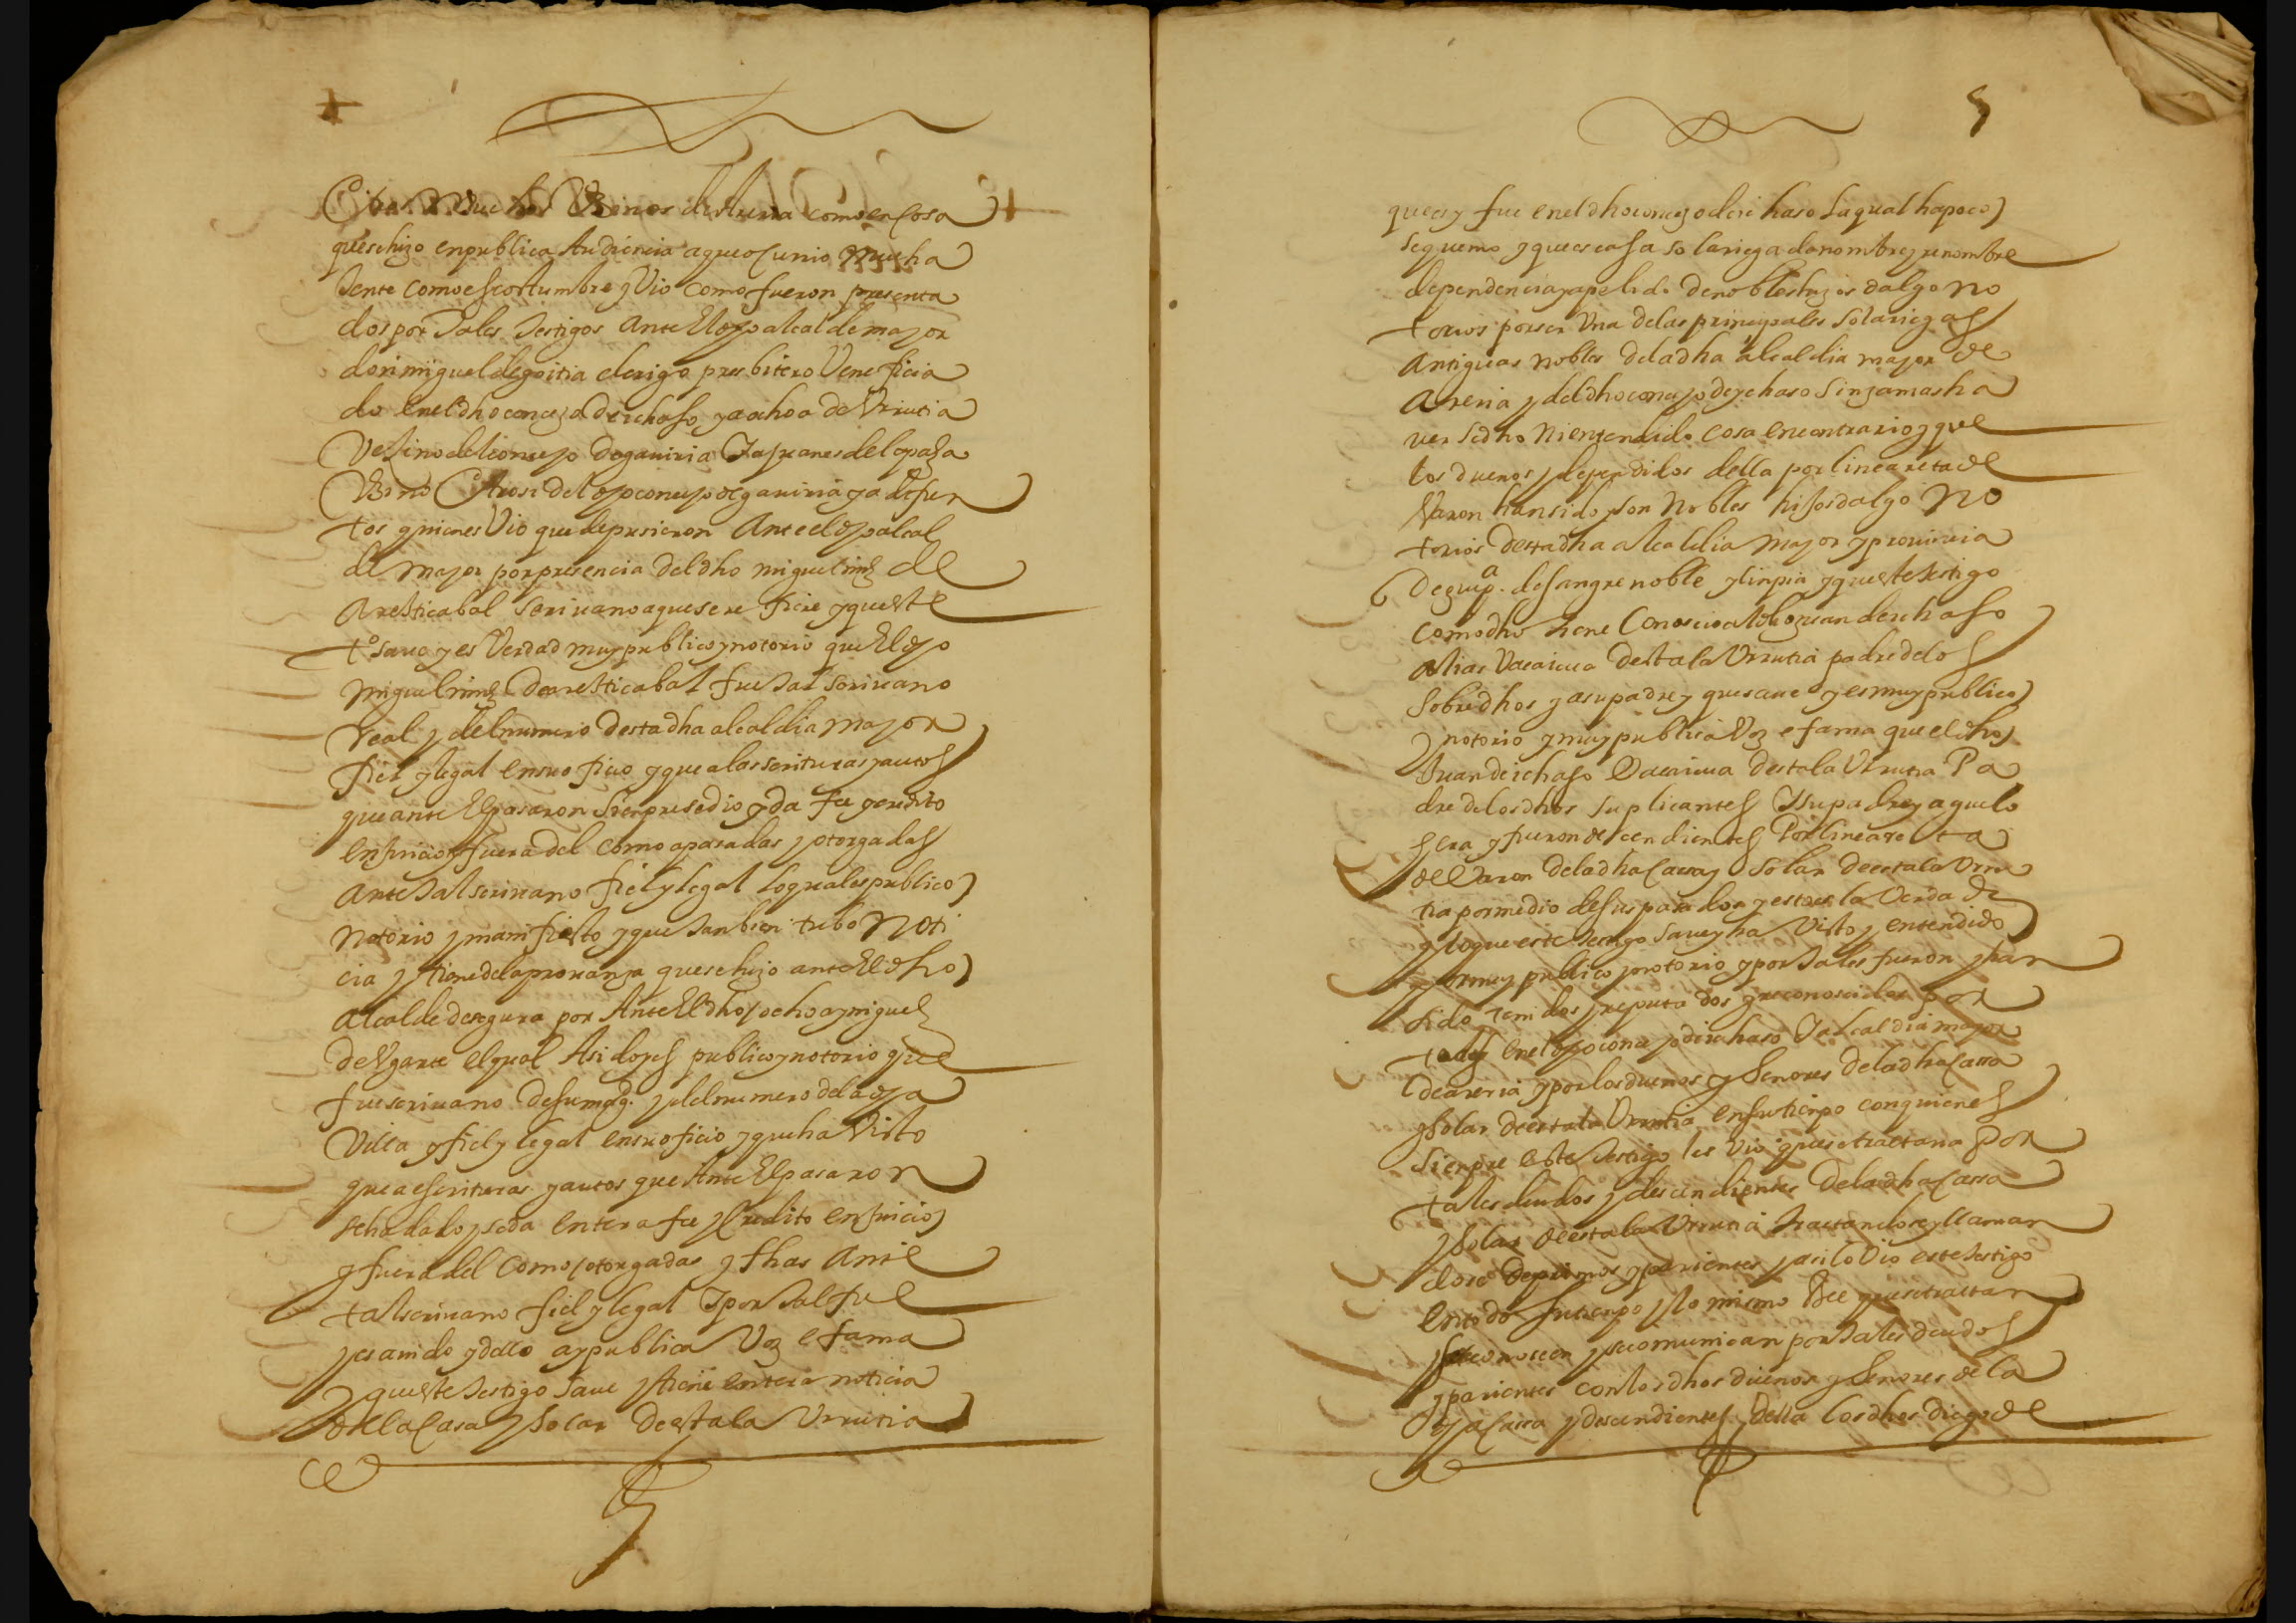 muchos de Areria como en cosa
que se hizo en publica Audiencia a que ocurrio mucha
Jente como es costumbre y Vio como fueron presenta
dos por Tales Testigos ante El dho alcalde mayor
don miguel de goitia clerigo presbitero Veneficia
do en el dho concejo de ichaso y a ochoa de Vrrutia
Vezino del concejo de gaviria
del dho concejo de gaviria y a
tos quienes Vio que depusieron Ante el dho alcal
de mayor por presencia del dho miguel de
Aresticabal scrivano a que se re fiere y queste
to save y es Verdad muy publico y notorio que El dho
miguel de aresticabal fue Tal scrivano
Real y del numero desta dha alcaldia mayor
fiel y legal en su oficio y que a las scrituras y autos
que ante El pasaron sienpre se dio y da fee y credito
en juicio y fuera del como a pasadas y otorgadas
ante Tal scrivano fiel y legal lo qual es publico
notorio y manifiesto y que Tanbien tubo noti
cia y tiene de la provanza que se hizo ante El dho
Alcalde de segura por Ante El dho ochoa y miguel
de Vgarte el qual Asi dos publico y notorio que
fue scrivano de su magd. y del numero de la dha
Villa y fiel y legal en su oficio y que ha Visto
que a escrituras y autos que Ante El pasaron
se ha dado y se da entera fee y credito en juicio
y fuera del como otorgadas y fhas Ante
tal scrivano fiel y legal y por Tal fue
y es avido y dello ay publica Voz e fama
y queste Testigo save y tiene entera noticia
de la casa y solar de estala Vrrutia
que es y fue en el dho concejo de ichaso la qual ha poco
se quemo y que es casa solariega de nombre y renombre
dependencia y apelido de nobles hijos dalgo no
torios por ser Vna de las principales solariegas
Antiguas nobles de la dha alcaldia mayor de
Areria y del dho concejo de ychaso sin jamas ha
ver sido ni entendido cosa en contrario y que
los duenos y dependidos della por linea reta de
Varon han sido y son nobles hijos dalgo no
torios desta dha alcaldia mayor y provincia
de guipa. de sangre noble y linpia y queste Testigo
como dho tiene Conoscio al dho juan de ichaso
alias Vacaicua de estala Vrrutia padre de los
sobre dhos y a su padre y que save y es muy publico
y notorio y muy publica Voz e fama que el dho
Juan de ichaso Vacaicua de estala Vrrutia Pa
dre de los dhos suplicantes y su padre y aguelo
era y fueron decendientes Por linea reta
de Varon de la dha Cassa y solar de estala Vrru
tia por medio de sus pasados y esta es la Verda de
y lo que este Testigo save y ha Visto y entendido
y es muy publico y notorio y por Tales fueron y han
sido Tenidos y reputados y reconoscidos por
todos en el dho concejo de ichaso y alcaldia mayor
de areria y por los duenos y señores de la dha Cassa
y solar de estala Vrrutia en su tienpo con quienes
sienpre este Testigo les Vio que se tractava por
tales deudos y descendientes de la dha Cassa
y solar de estala Vrrutia tractandose y llaman
dose de primos y parientes y asi lo Vio este Testigo
en todo su tienpo y lo mismo Vee que se tractan
y se reconoscen y se comunican por Tales deudos
y parientes con los dhos duenos y señores de la
dha Cassa y descendientes della los dhos diego de